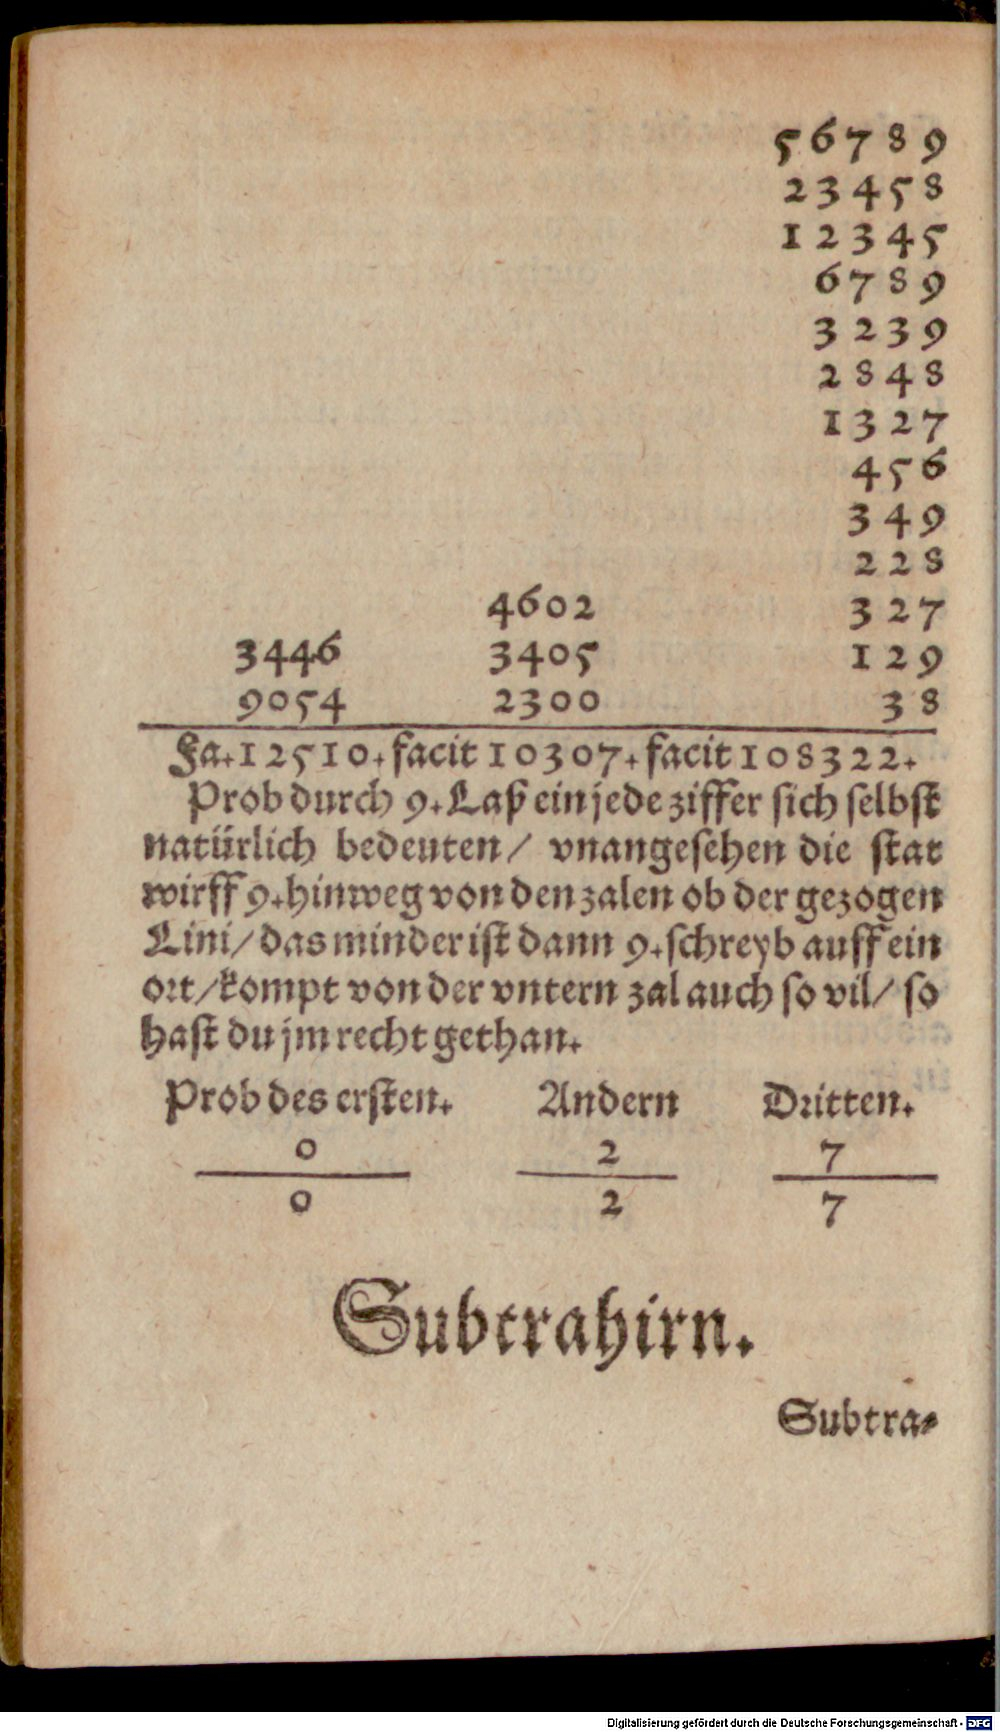 56789
23458
12345
6789
3239
2848
1327
456
349
228
4602 327
3446 3405 129
9054 2300 38
Fa.12510. facit 10307. facit 108322.
Prob durch 9. Laß ein jede ziffer sich selbst
natürlich bedeuten/ vnangesehen die stat
wirff 9. hinweg von den zalen ob der gezogen
Lini/ das minder ist dann 9. schreyb auff ein
ort/ kompt von der vntern zal auch so vil/ so
hast du jm recht gethan.
Prob des ersten. Andern Dritten.
0 2 7
0 2 7
Subtrahirn.
Subtra-
Digitalisierung gefördert durch die Deutsche Forschungsgemeinschaft - DFG